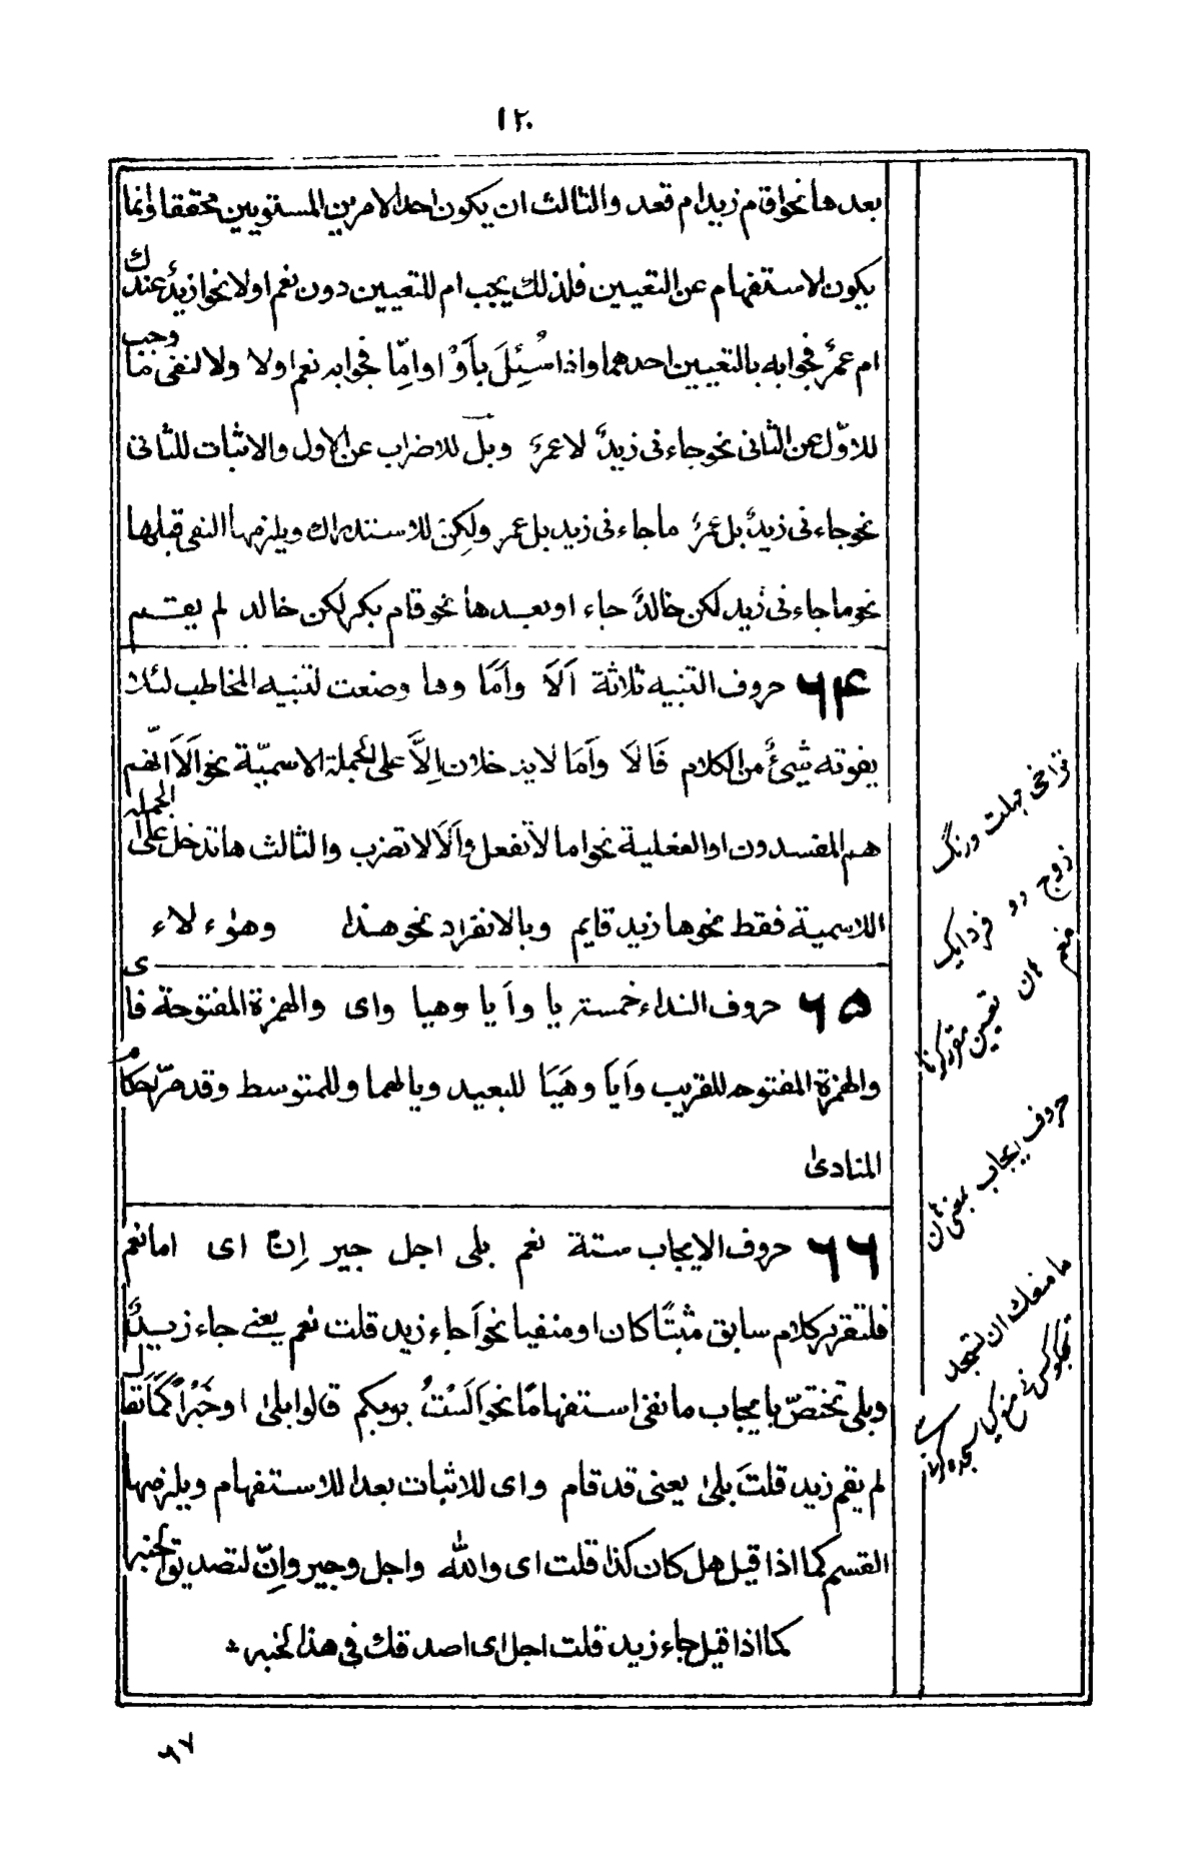 ١٢٠
بعدها نحو اقام زيد ام قعد والثالث ان يكون احد الامرين المستويين محققا وانما
يكون لاستفهام عن التعيين فلذلك يجب ام للتعيين دون نعم او لا نحو ازيدٌ عندك
ام عمرٌ فجوابه بالتعيين احدهما واذا سُئِلَ بأَوْ او امِّا فجوابه نعم او لا ولا لنفى ما وجب
للاوّل عن الثانى نحو جاءنى زيدٌ لا عمرٌ وبل للاضراب عن الاول والاثبات للثانى
نحو جاءنى زيدٌ بل عمرٌ ما جاءنى زيد بل عمر ولكِن للاستدراك ويلزمها النفى قبلها
نحو ما جاءنى زيد لكن خالدٌ جاء او بعدها نحو قام بكر لكن خالد لم يقم
٦٤ حروف التنبيه ثلاثة اَلَا واَمَا وها وضعت لتنبيه المخاطب لئلا
يفوته شيئٌ من الكلام فَاَلَا واَمَا لا يدخلان اِلَّا على الجملة الاسميّة نحو اَلَا انّهم
هم المفسدون او الفعلية نحو اما لا تفعل واَلَا لا تضرب والثالث ها تدخل على الجملة
الاسمية فقط نحو ها زيد قايم وبالانفراد نحو هذا وهٰؤلاء
٦٥ حروف النداء خمسة يا واَيا وهيا واى والهمزة المفتوحة فاى
والهمزة المفتوحه للقريب واَيَا وهَيَا للبعيد ويا لهما وللمتوسط وقد مرّ احكام
المنادىٰ
٦٦ حروف الايجاب ستة نعم بلى اجل جير اِنّ اى اما نعم
فلتقرير كلام سابق مثبتًا كان او منفيا نحو اَجاء زيد قلت نعم يعنے جاء زيدٌ
وبلى تختصّ بايجاب ما نفى استفهامًا نحو اَلَسْتُ بربكم قالوا بلىٰ او خَبْرًا كَمَا يقال
لم يقم زيد قلتَ بلىٰ يعنى قد قام واى للاثبات بعد الاستفهام ويلزمها
القسم كما اذا قيل هل كان كذا قلت اى والله واجل وجير واِنّ لتصديق الخبر
كما اذا قيل جاء زيد قلت اجل اى اصدقك فى هذا الخبر
تراخى مہلت ورنگ
زوج دو فرد ايک
نعم ہاں تعيين مقرر کرنا
حروف ايجاب بمعنى ہاں
ما منعك ان تسجد
تجکو کس نے منع کی سجدہ کرنے سے
٦٧